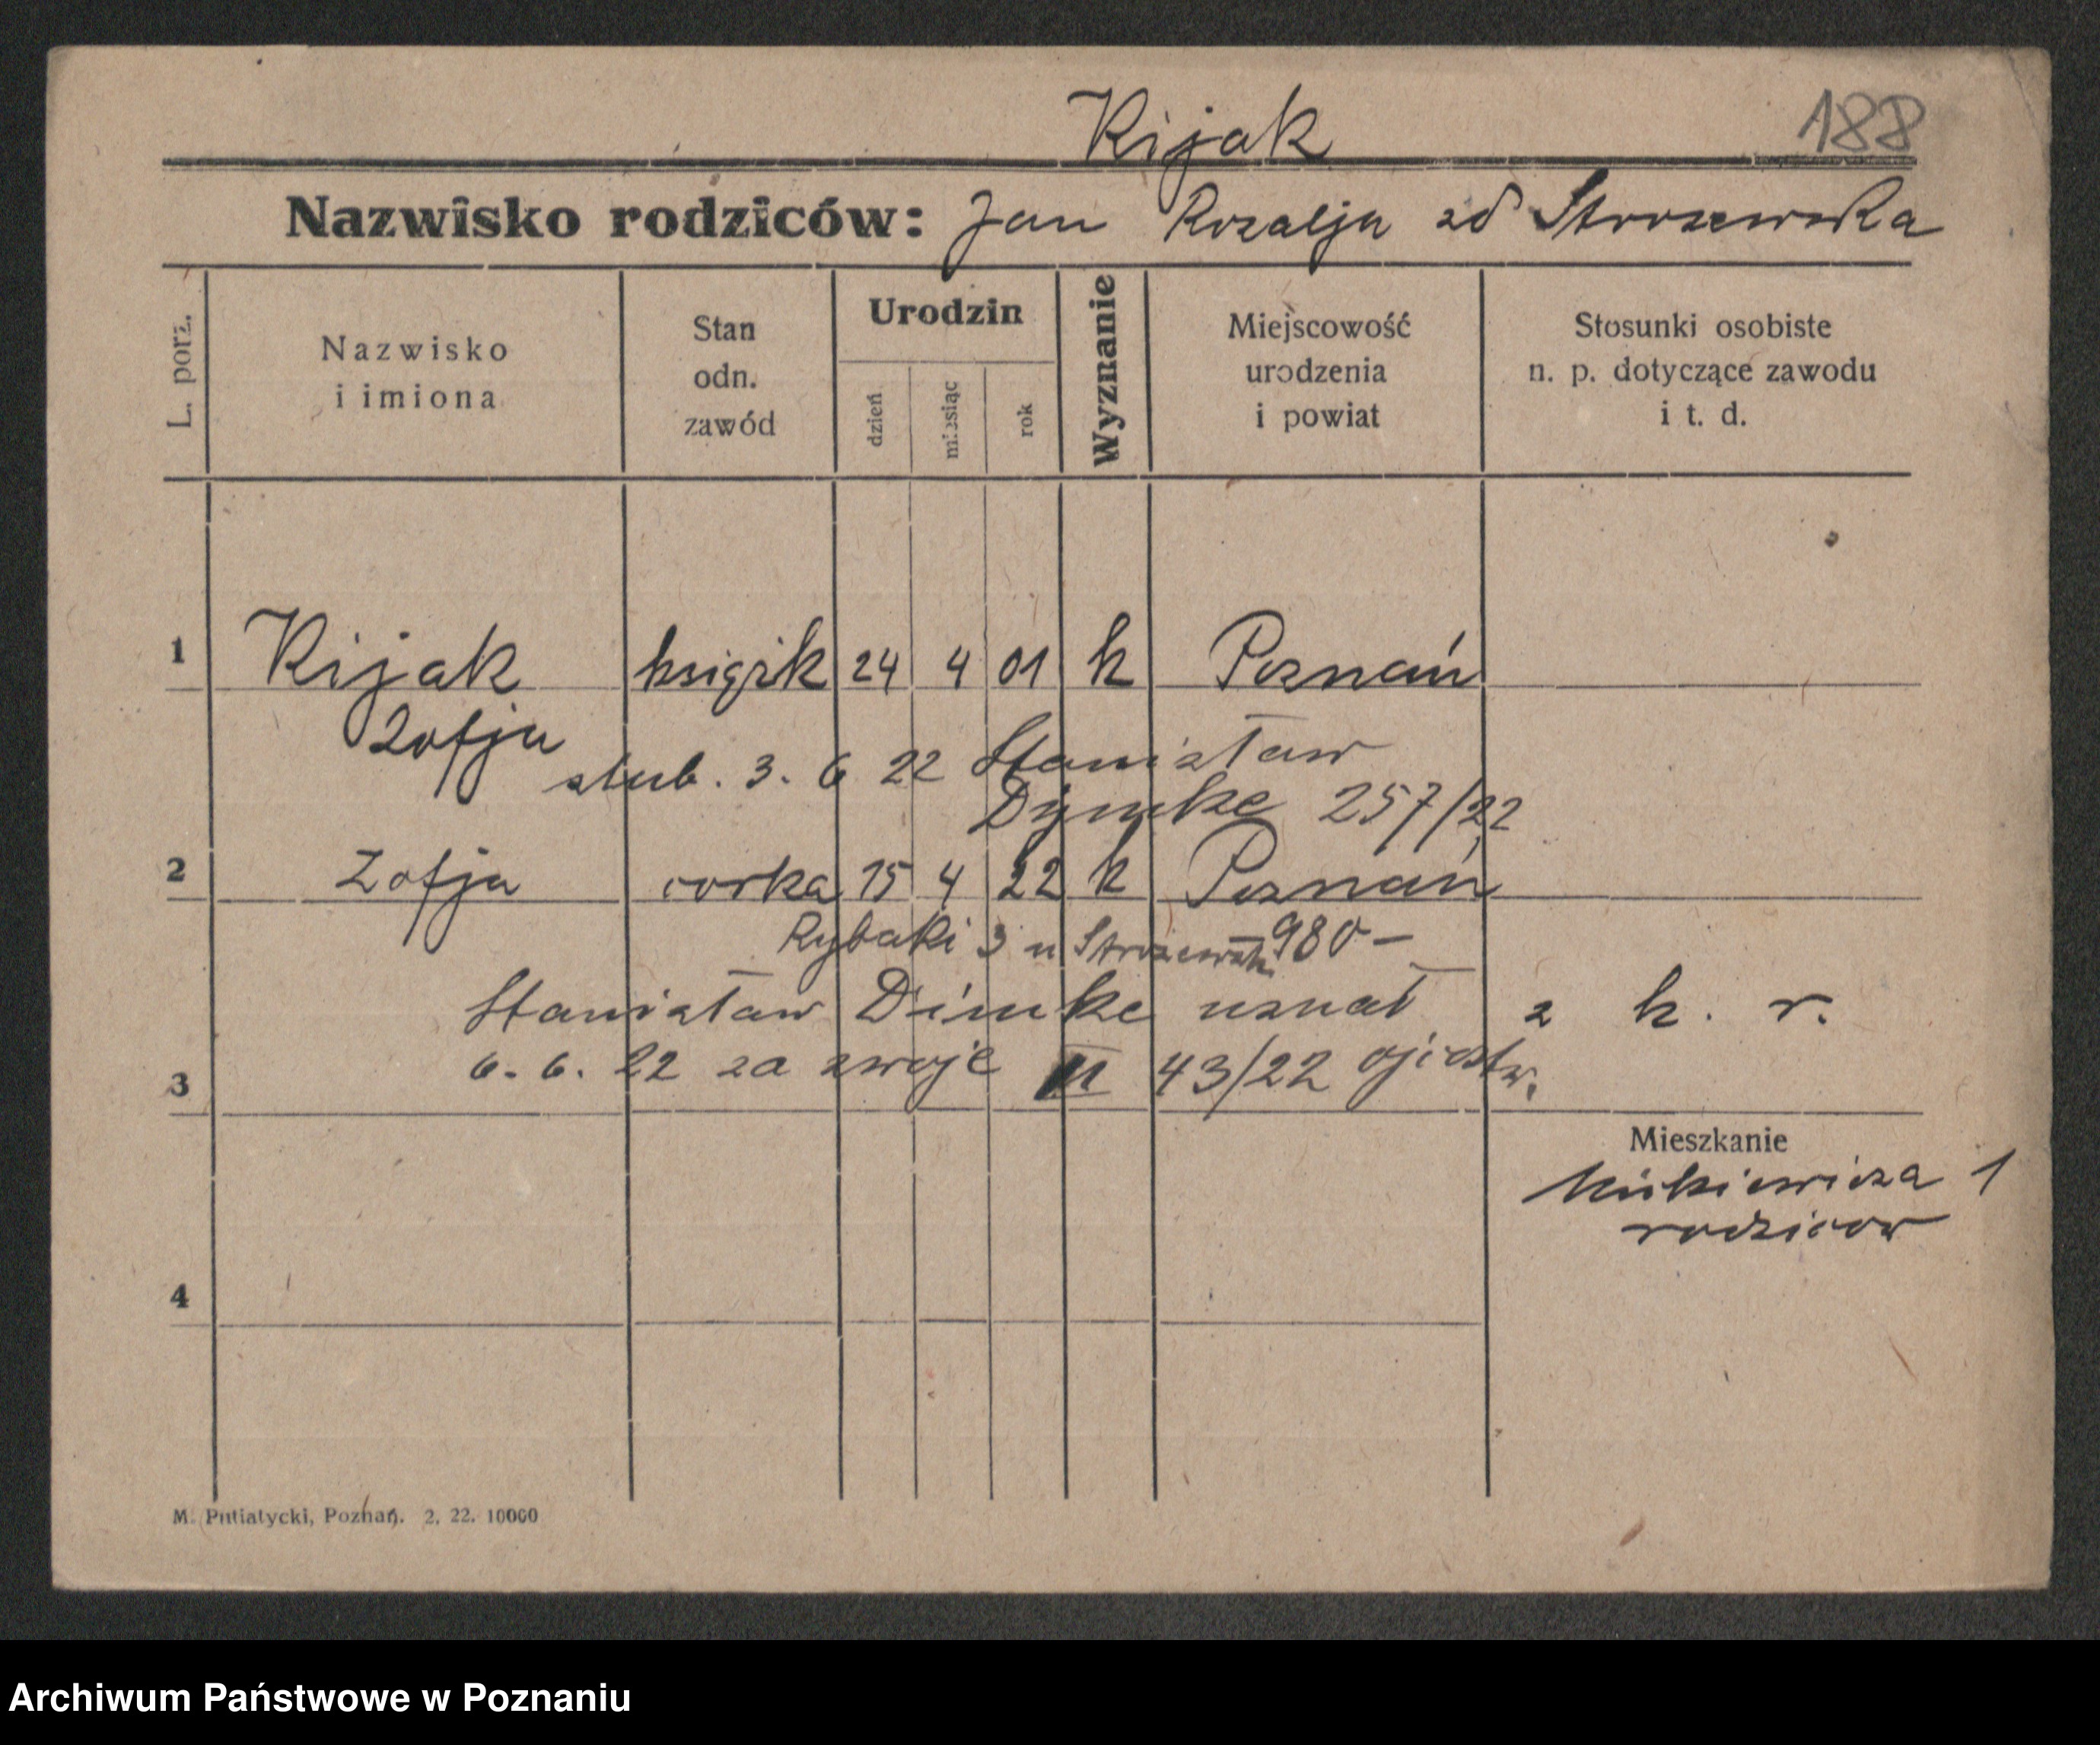 Kijak 188
Nazwisko rodziców: Jan Rozalja zd Strozewska
L. porz.
Nazwisko
i imiona
Stan
odn.
zawód
Urodzin
dzień
miesiąc
rok
Wyznanie
Miejscowość
urodzenia
i powiat
Stosunki osobiste
n. p. dotyczące zawodu
i t. d.
1 Kijak księzk 24 4 01 k Poznań
Zofja
slub. 3. 6 22 Stanisław
Dymke 257/22
2 Zofja corka 15 4 22 k Poznań
Rybaki 3 u 980-
Stanisław Dimke uznał z k. r.
6. 6. 22 za swoje 43/22 ojcostw.
3
Mieszkanie
Mickiewicza 1
rodzicow
4
M. Putiatycki, Poznań. 2. 22. 10000
Archiwum Państwowe w Poznaniu